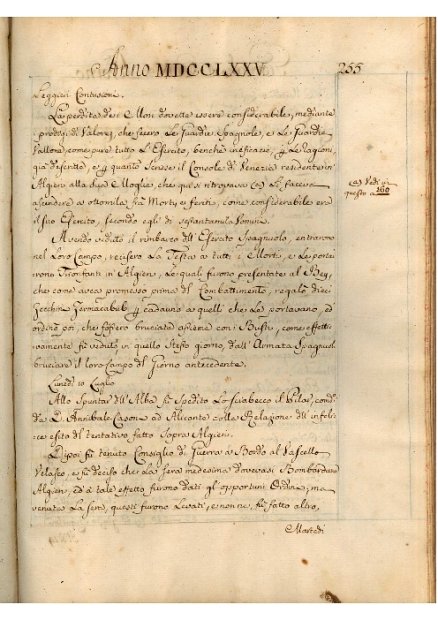 Anno MDCCLXXV. 255
Leggieri Contusioni.
La perdita de i Mori dovette essere considerabile, mediante
prodigj di Valore, che fecero Le Guardie Spagnole, e La Guardia
Vallona, come pure tutto L'Esercito, benchè inefficace, per Le Ragioni,
già descritte, e per quanto scrisse il Console di Venezia residente in
Algieri alla di Lui Moglie, che quì si ritrovava (a) La faceva
ascendere a ottomila fra Morti, e feriti, come considerabile era
il suo Esercito, secondo egli di sessantamila Uomini.
(a) Vedi in
questo a 260
Avendo veduto il rimbarco dell'Esercito Spagnuolo, entrarono
nel Loro Campo, recisero La Testa a tutti i Morti, e Le porta-
rono Trionfanti in Algieri, Le quali furono presentate al Bey,
che come avea promesso prima del Combattimento, regalò dieci
Zecchini Zermahabub per cadauno a quelli che Le portavano, ed
ordinò poi, che fossero bruciate assieme con i Busti, come effetti-
vamente fu veduto in quello stesso giorno, dall'Armata Spagnuola
bruciare il loro Campo del Giorno antecedente.
Lunedì 10 Luglio
Allo Spuntar dell'Alba fù Spedito Lo Sciabecco il Pilar, cond.º
da D. Annibale Casoni ad Alicante colla Relazione dell'infeli-
ce esito del tentativo fatto sopra Algieri.
Dipoi fù tenuto Consiglio di Guerra a Bordo al Vascello
Velasco, e fù deciso che La sera medesima dovevasi Bombardare
Algieri, ed a tale effetto furono dati gl'opportuni Ordini; ma
venuta La sera, questi furono Levati, e non ne fù fatto altro,
Martedì